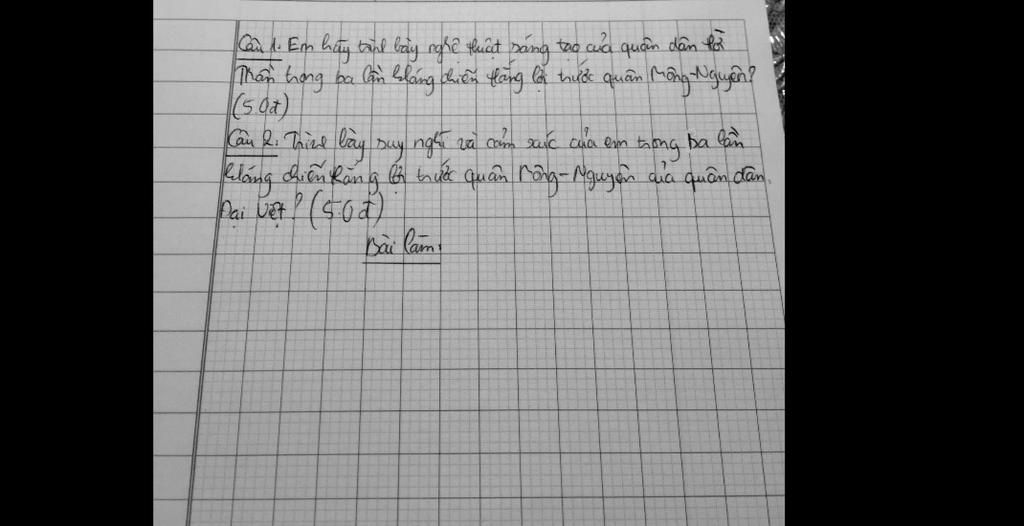 Câu 1. Em hãy trình bày nghệ thuật sáng tạo của quân dân thời
Trần trong ba lần kháng chiến thắng lợi trước quân Mông-Nguyên?
(5.0đ)
Câu 2. Trình bày suy nghĩ và cảm xúc của em trong ba lần
kháng chiến thắng lợi trước quân Mông-Nguyên của quân dân
Đại Việt? (5.0đ)
Bài làm.